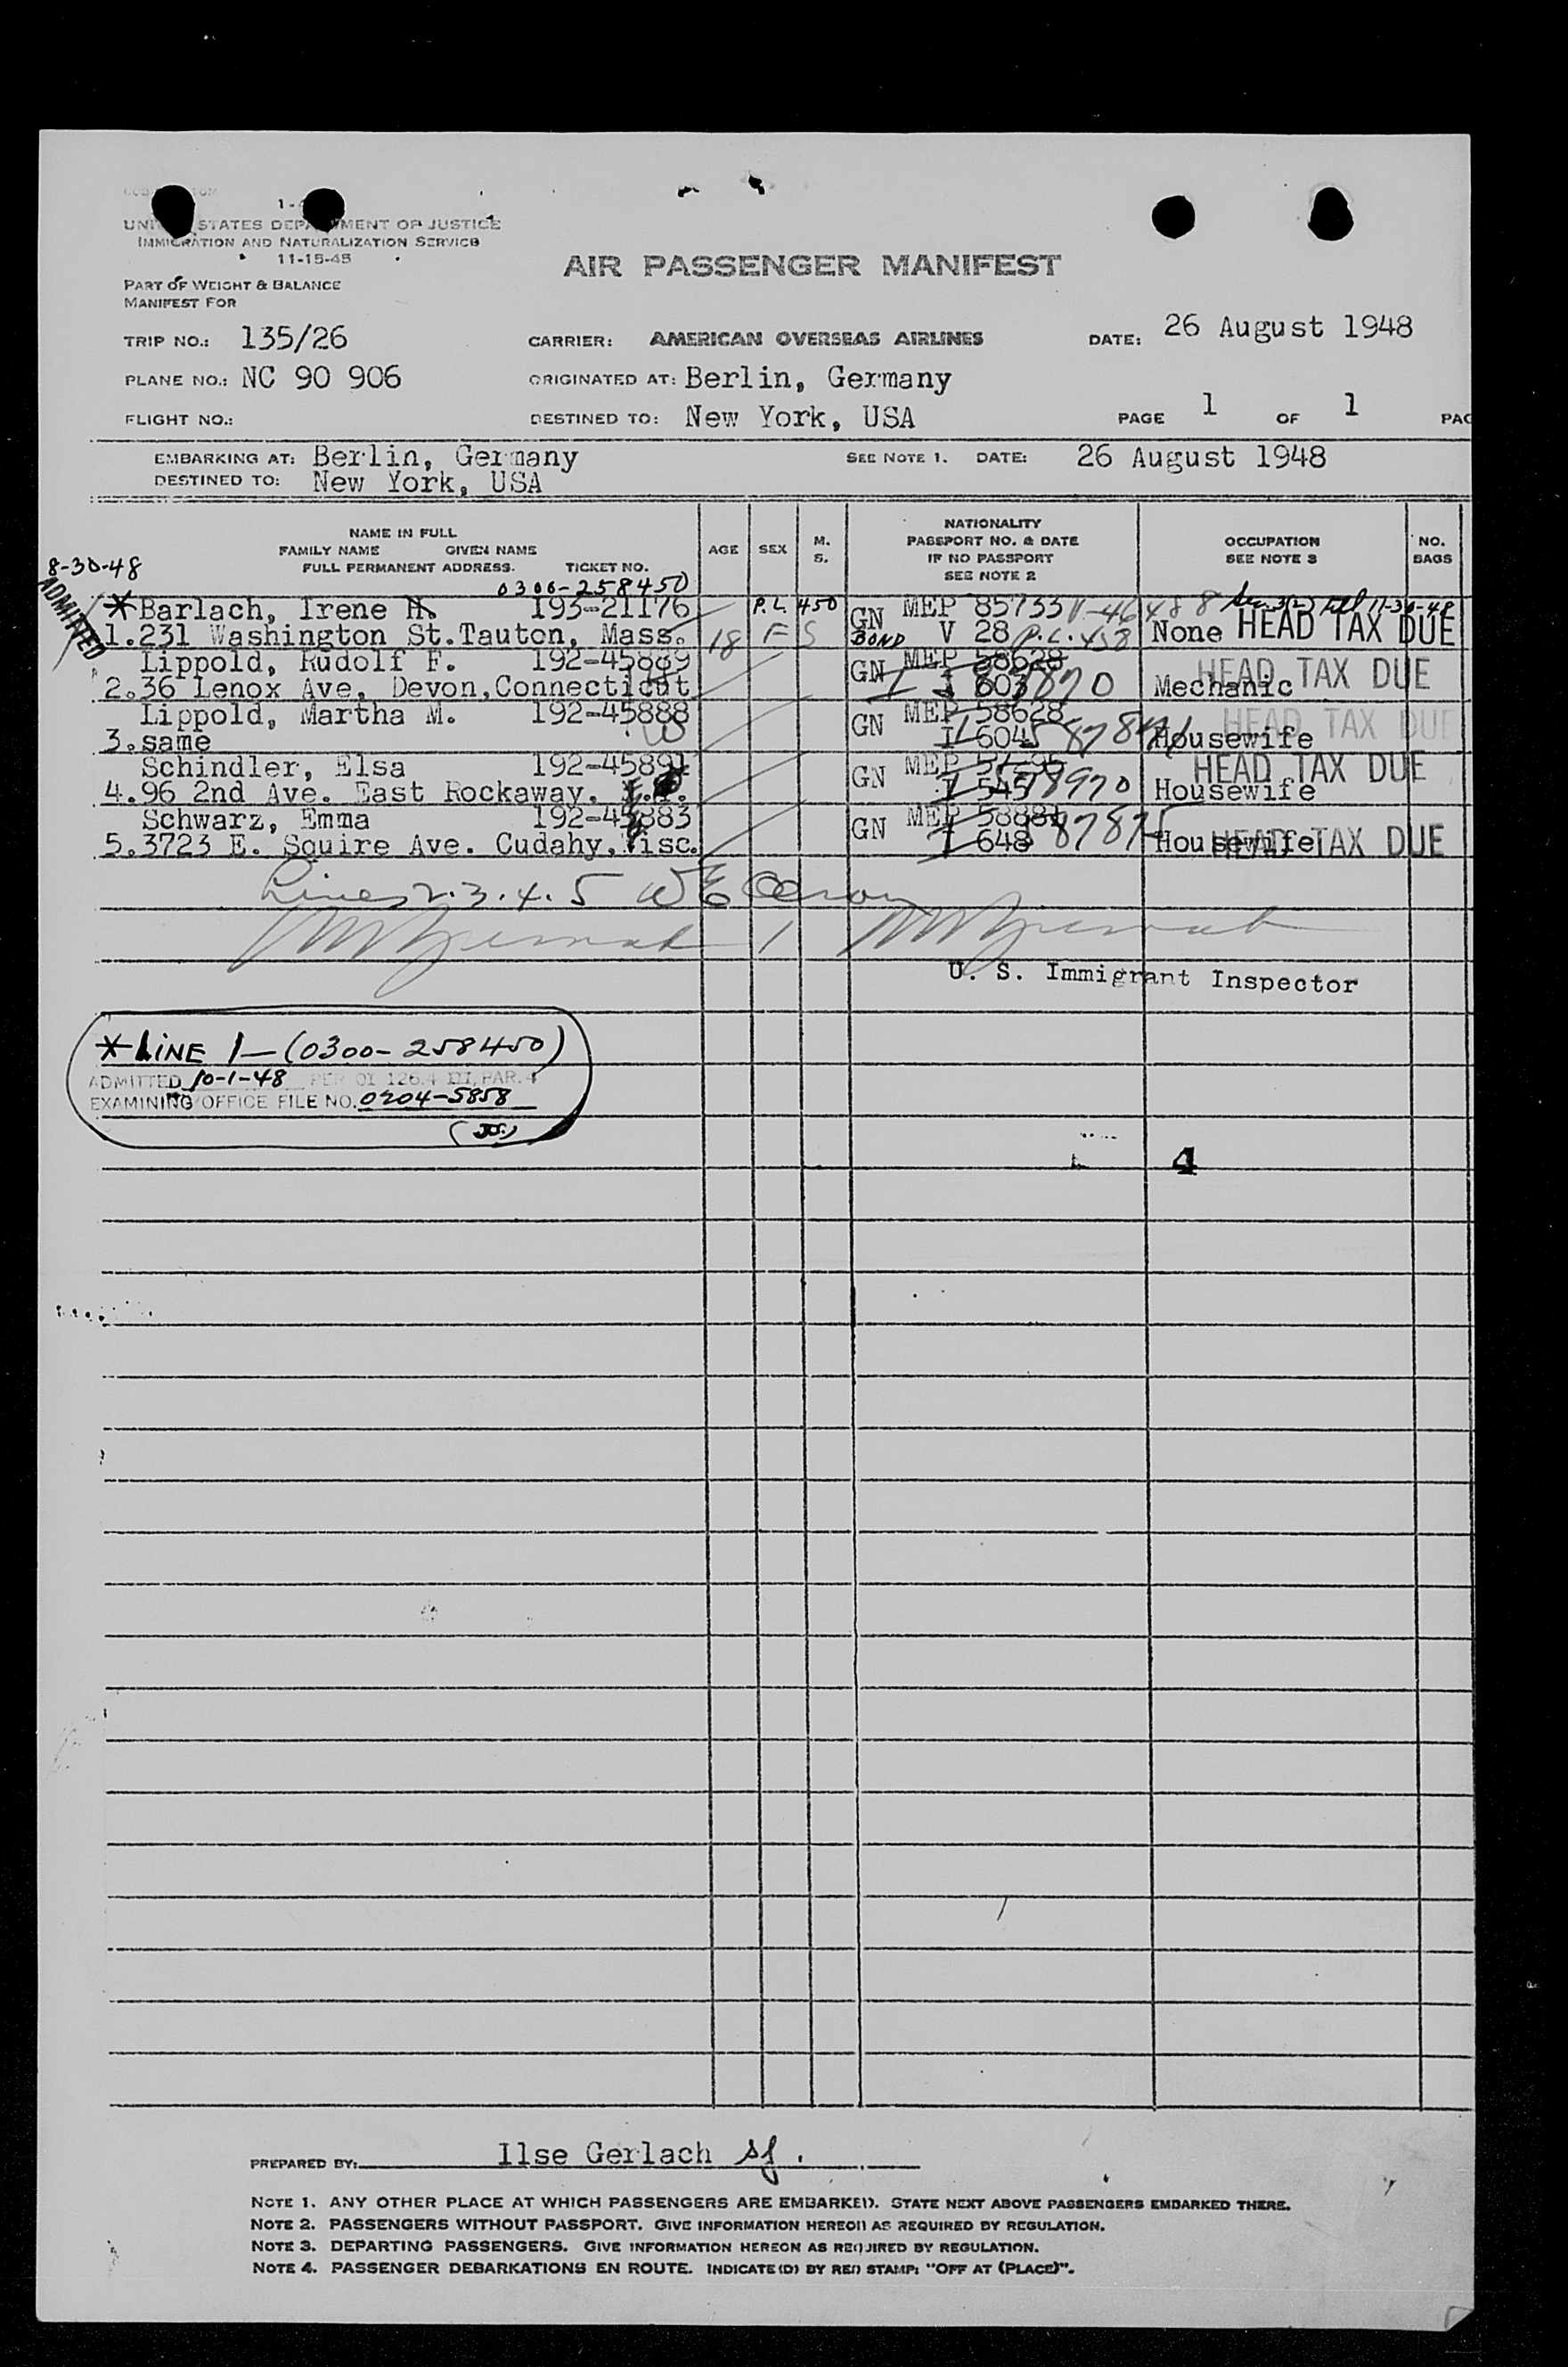 UNITED STATES DEPARTMENT OF JUSTICE
IMMIGRATION AND NATURALIZATION SERVICE
11-15-45
AIR PASSENGER MANIFEST
PART OF WEIGHT & BALANCE
MANIFEST FOR
TRIP NO.: 135/26 CARRIER: AMERICAN OVERSEAS AIRLINES DATE: 26 August 1948
PLANE NO.: NC 90 906 ORIGINATED AT: Berlin, Germany
FLIGHT NO.: DESTINED TO: New York, USA PAGE 1 OF 1 PAG
EMBARKING AT: Berlin, Germany SEE NOTE 1. DATE: 26 August 1948
DESTINED TO: New York, USA
NAME IN FULL
FAMILY NAME GIVEN NAME
FULL PERMANENT ADDRESS. TICKET NO.
AGE SEX M. S.
NATIONALITY
PASSPORT NO. & DATE
IF NO PASSPORT
SEE NOTE 2
OCCUPATION
SEE NOTE 3
NO.
BAGS
8-30-48
ADMITTED
0300-258450
*Barlach, Irene H. 193-21176 P.L. 450 GN MEP 85733 V-46488 11-30-48
1.231 Washington St.Tauton, Mass. 18 F S BOND V 28 P.L. 458 None HEAD TAX DUE
Lippold, Rudolf F. 192-45889 GN MEP 58628 HEAD TAX DUE
2.36 Lenox Ave, Devon,Connecticut I 603 Mechanic
Lippold, Martha M. 192-45888 GN MEP 58628 HEAD TAX DUE
3.same I 604 Housewife
Schindler, Elsa 192-45891 GN MEP HEAD TAX DUE
4.96 2nd Ave. East Rockaway, I 545 Housewife
Schwarz, Emma 192-45883 GN MEP 58884
5.3723 E. Squire Ave. Cudahy,Wisc. I 648 Housewife HEAD TAX DUE
Lines 2.3.4.5
U. S. Immigrant Inspector
*LINE 1—(0300-258450)
ADMITTED 10-1-48 PER OI 126.4 III, PAR. 4
EXAMINING OFFICE FILE NO. 0204-5858
4
PREPARED BY: Ilse Gerlach
NOTE 1. ANY OTHER PLACE AT WHICH PASSENGERS ARE EMBARKED. STATE NEXT ABOVE PASSENGERS EMBARKED THERE.
NOTE 2. PASSENGERS WITHOUT PASSPORT. GIVE INFORMATION HEREON AS REQUIRED BY REGULATION.
NOTE 3. DEPARTING PASSENGERS. GIVE INFORMATION HEREON AS REQUIRED BY REGULATION.
NOTE 4. PASSENGER DEBARKATIONS EN ROUTE. INDICATE(D) BY RED STAMP: "OFF AT (PLACE)".